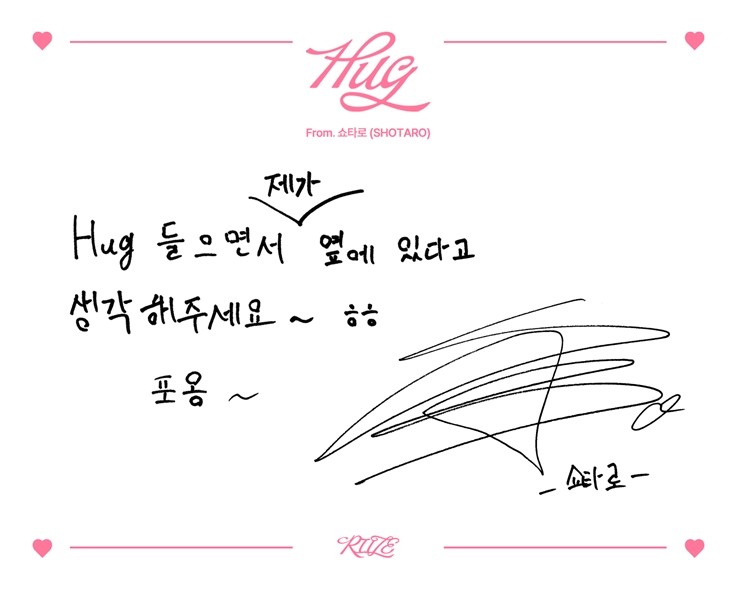 Hug
From. 쇼타로 (SHOTARO)
제가
Hug 들으면서 옆에 있다고
생각해주세요~ ㅎㅎ
포옹~
- 쇼타로 -
RIIZE